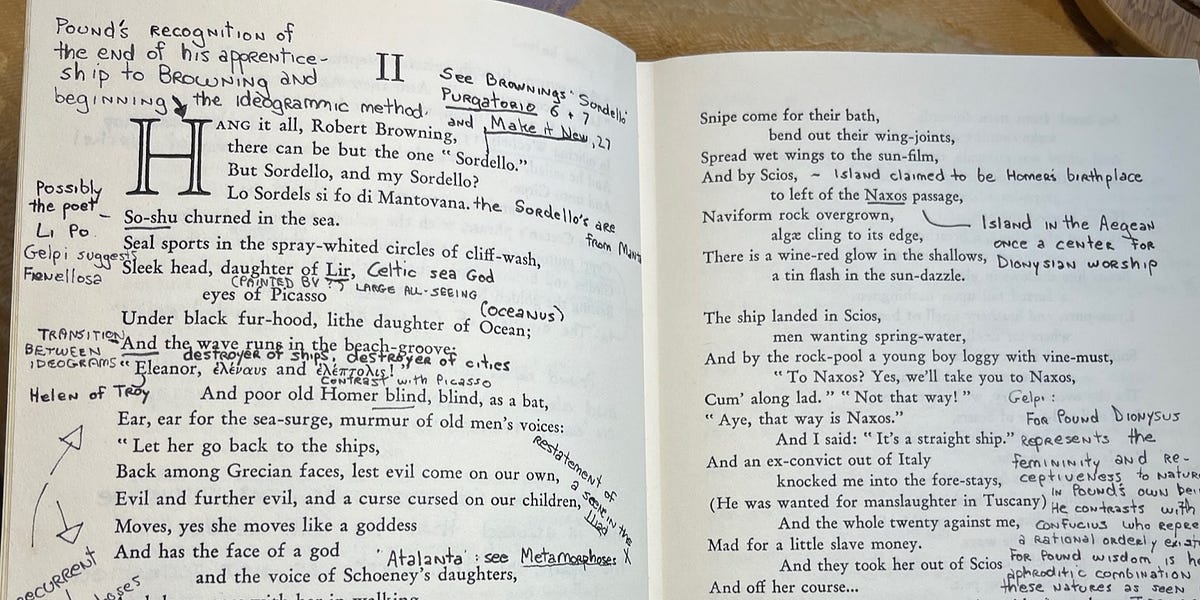 Pound's recognition of
the end of his apprentice-
ship to Browning and
beginning the ideogrammic method.
II
See Brownings' Sordello
Purgatorio 6 + 7
and Make it New, 27
HANG it all, Robert Browning,
there can be but the one “ Sordello.”
But Sordello, and my Sordello?
Lo Sordels si fo di Mantovana. the Sordello's are
from
Possibly
the poet –
Li Po.
Gelpi suggests
So-shu churned in the sea.
Seal sports in the spray-whited circles of cliff-wash,
Sleek head, daughter of Lir, Celtic sea God
(PAINTED BY ?) LARGE ALL-SEEING
eyes of Picasso
(OCEANUS)
Under black fur-hood, lithe daughter of Ocean;
TRANSITION
BETWEEN
IDEOGRAMS
And the wave runs in the beach-groove:
destroyer of ships, destroyer of cities
“ Eleanor, ἑλέναυς and ἑλέπτολις! ”
CONTRAST with Picasso
Helen of Troy
And poor old Homer blind, blind, as a bat,
Ear, ear for the sea-surge, murmur of old men's voices:
“ Let her go back to the ships,
Back among Grecian faces, lest evil come on our own,
Evil and further evil, and a curse cursed on our children,
Restatement of
a scene in the
Iliad
Moves, yes she moves like a goddess
And has the face of a god
'Atalanta' : see Metamorphoses X
and the voice of Schoeney's daughters,
RECURRENT
Snipe come for their bath,
bend out their wing-joints,
Spread wet wings to the sun-film,
And by Scios, ~ Island claimed to be Homer's birthplace
to left of the Naxos passage,
Naviform rock overgrown,
algæ cling to its edge,
There is a wine-red glow in the shallows,
a tin flash in the sun-dazzle.
Island in the Aegean
once a center for
Dionysian worship
The ship landed in Scios,
men wanting spring-water,
And by the rock-pool a young boy loggy with vine-must,
“ To Naxos? Yes, we'll take you to Naxos,
Cum' along lad. ” “ Not that way! ”
“ Aye, that way is Naxos.”
And I said: “ It's a straight ship.”
And an ex-convict out of Italy
knocked me into the fore-stays,
(He was wanted for manslaughter in Tuscany)
And the whole twenty against me,
Mad for a little slave money.
And they took her out of Scios
And off her course...
Gelpi:
For Pound Dionysus
represents the
femininity and re-
ceptiveness to
in Pound's own
He contrasts with
Confucius who
a rational orderly
For Pound wisdom is
aphroditic combination
these natures as seen